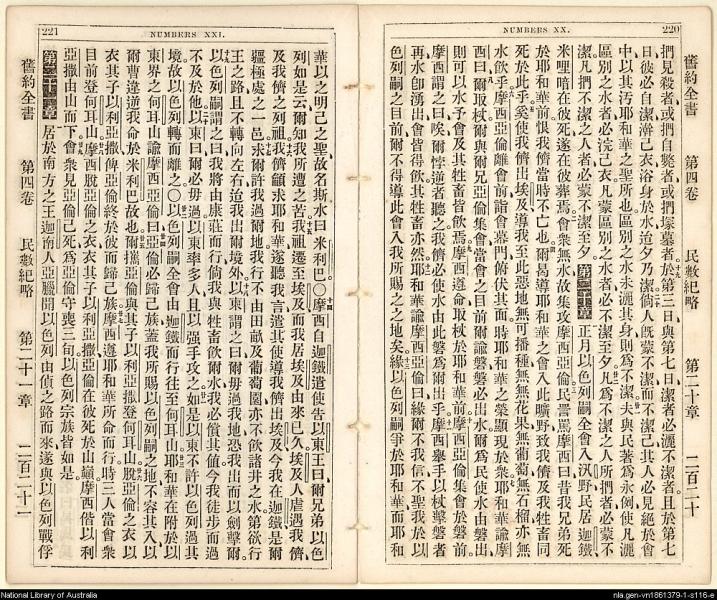 NUMBERS XX.
220
舊約全書 第四卷 民數紀略 第二十章 二百二十
捫見殺者或捫自斃者或捫塚墓者於第三日與第七日潔者必灑不潔者且於第七
日彼必自潔澣己衣浴身於水迨夕乃潔倘人旣蒙不潔而不潔己其人必見絕於會
中以其污耶和華之聖所也區別之水未灑其身則爲不潔夫與民著爲永例使凡灑
區別之水者必浣己衣凡蒙區別之水者必不潔至夕凡爲不潔之人所捫者必蒙不
潔凡捫不潔之人者必蒙不潔至夕第二十章正月以色列嗣全會入汛野民居迦鐵
米哩喑在彼死遂在彼葬焉會衆無水故集攻摩西亞倫民詈罵摩西曰昔我兄弟死
於耶和華前恨我儕當時不亡也爾曷導耶和華之會入此曠野致我儕及我牲畜同
死於此乎奚使我儕出埃及導我至此惡地無可播種無無花果無葡萄無石榴亦無
水飲乎摩西亞倫離會前詣會幕門俯伏其面時耶和華之榮顯現於衆耶和華諭摩
西曰爾取杖爾與爾兄亞倫集會當會之目前爾諭磐磐必出水爾爲民使水由磐出
則可以水予會及其牲畜皆飲焉摩西遵命取杖於耶和華前摩西亞倫集會於磐前
摩西謂之曰唉爾悖逆者聽之我儕必使水由此磐爲爾出乎摩西舉手以杖擊磐者
再水卽湧出會皆得飲其牲畜亦然耶和華諭摩西亞倫曰緣爾不我信不聖我於以
色列嗣之目前爾不得導此會入我所賜之之地矣緣以色列嗣爭於耶和華而耶和
NUMBERS XXI.
221
華以之明己之聖故名斯水曰米利巴〇摩西自迦鐵遣使告以東王曰爾兄弟以色
列如是云爾知我所遭之苦我祖遷至埃及而我居埃及由來已久埃及人虐遇我儕
及我儕之列祖我儕籲求耶和華遂聽我言遣其使導我儕出埃及今我在迦鐵是爾
疆極處之一邑求爾許我過爾地我行不由田畝及葡萄園亦不飲諸井之水第欲行
王之路且不轉向左右迨我出爾境外以東謂之曰爾毋過我地恐我出而以劍擊爾
以色列嗣謂之曰我將由康莊而行倘我與牲畜飲爾水我必償其値今我徒步而過
不及於他以東曰爾必毋過以東率多人且以强手攻之如是以東不許以色列過其
境故以色列轉而離之〇以色列嗣全會由迦鐵而行往至何耳山耶和華在附於以
東界之何耳山諭摩西亞倫曰亞倫必歸己族蓋我所賜以色列嗣之地不容其入以
爾曹違逆我命於米利巴故也爾攜亞倫與其子以利亞撒登何耳山脫亞倫之衣以
衣其子以利亞撒俾亞倫終於彼而歸己族摩西遵耶和華所命而行時三人當會衆
目前登何耳山摩西脫亞倫之衣衣其子以利亞撒亞倫在彼死於山巔摩西偕以利
亞撒由山而下會衆見亞倫已死爲亞倫守喪三旬以色列宗族皆如是
第二十一章居於南方之王迦南人亞臘聞以色列由偵之路而來遂與以色列戰俘
舊約全書 第四卷 民數紀略 第二十一章 二百二十一
National Library of Australia
nla.gen-vn1861379-1-s116-e